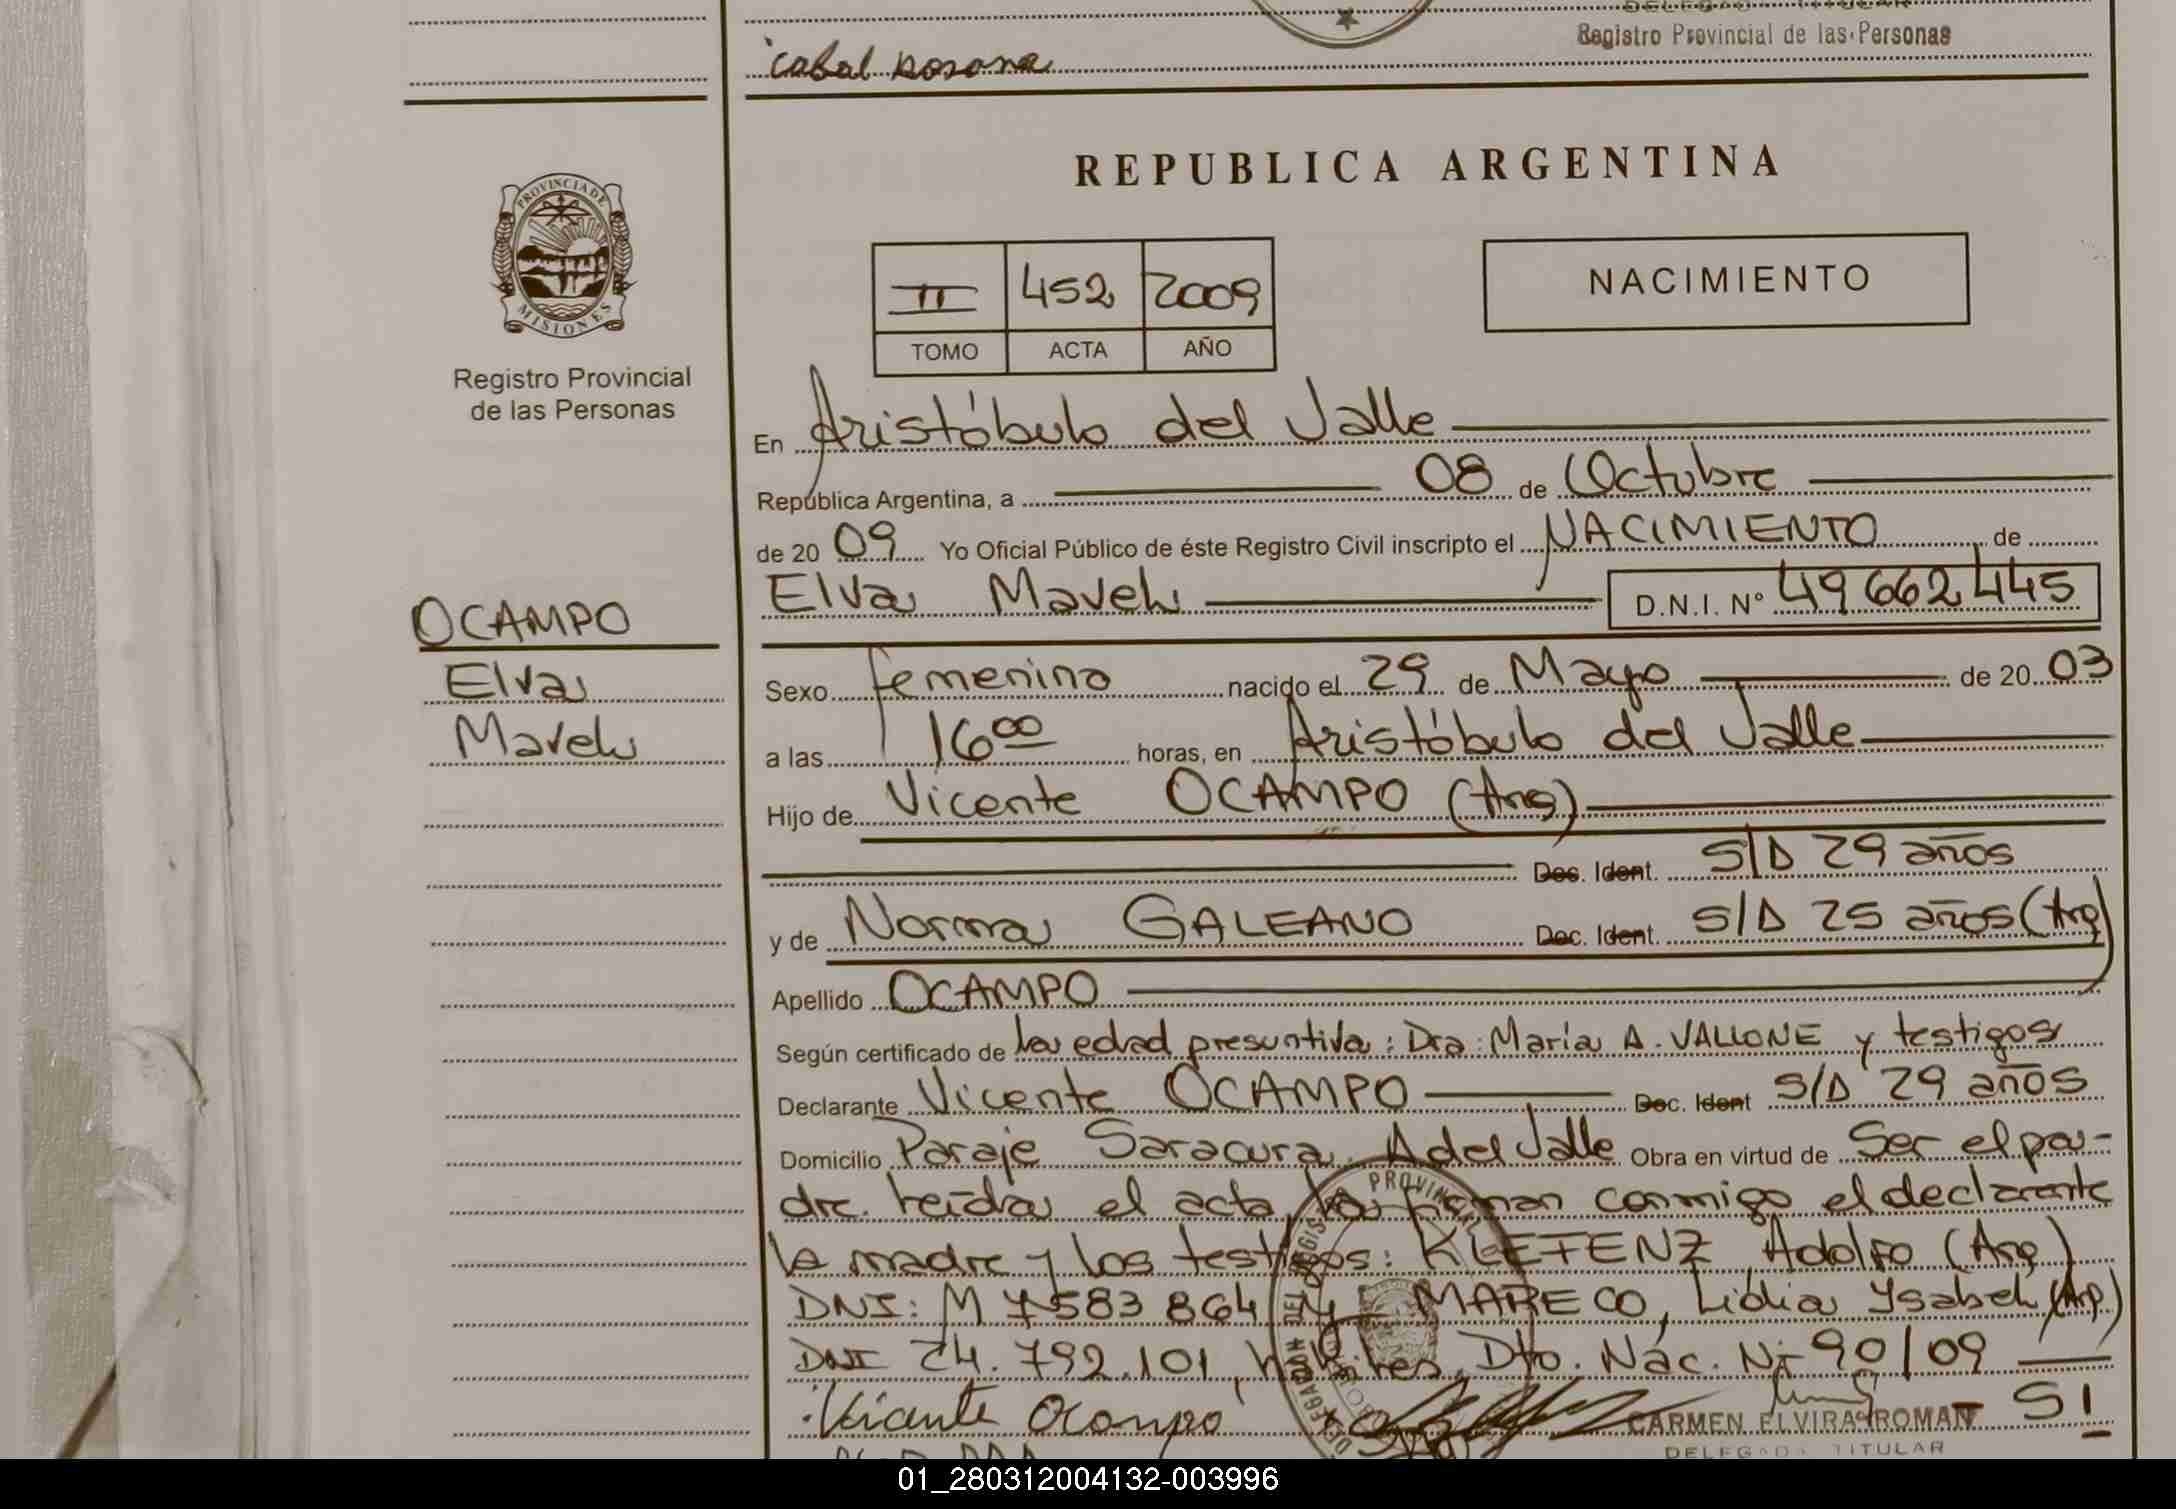 DELEGADA TITULAR
Registro Provincial de las Personas
REPUBLICA ARGENTINA
PROVINCIA DE
MISIONES
Registro Provincial
de las Personas
II 452 2009
TOMO ACTA AÑO
NACIMIENTO
En Aristóbulo del Valle
República Argentina, a 08 de Octubre
de 20 09 Yo Oficial Público de éste Registro Civil inscripto el NACIMIENTO de
Elva Maveli D.N.I. Nº 49662445
OCAMPO
Elva
Maveli
Sexo femenino nacido el 29 de Mayo de 20 03
a las 16 00 horas, en Aristóbulo del Valle
Hijo de Vicente OCAMPO (Arg)
Doc. Ident. S/D 29 años
y de Norma GALEANO Doc. Ident. S/D 25 años (Arg)
Apellido OCAMPO
Según certificado de la edad presuntiva: Dra: María A. VALLONE y testigos
Declarante Vicente OCAMPO Doc. Ident S/D 29 años
Domicilio Paraje Saracura. A del Valle Obra en virtud de Ser el pa-
dre. leída el acta, la firman conmigo el declarante
la madre y los testigos: KLEFENZ, Adolfo (Arg)
DNI: M 7583 864 y MARECO, Lidia Ysabel (Arg)
DNI 24.792.101, hábiles, Dto. Nac. Nº 90/09
Vicente Ocampo
CARMEN ELVIRA ROMAN
DELEGADA TITULAR
51
01_280312004132-003996